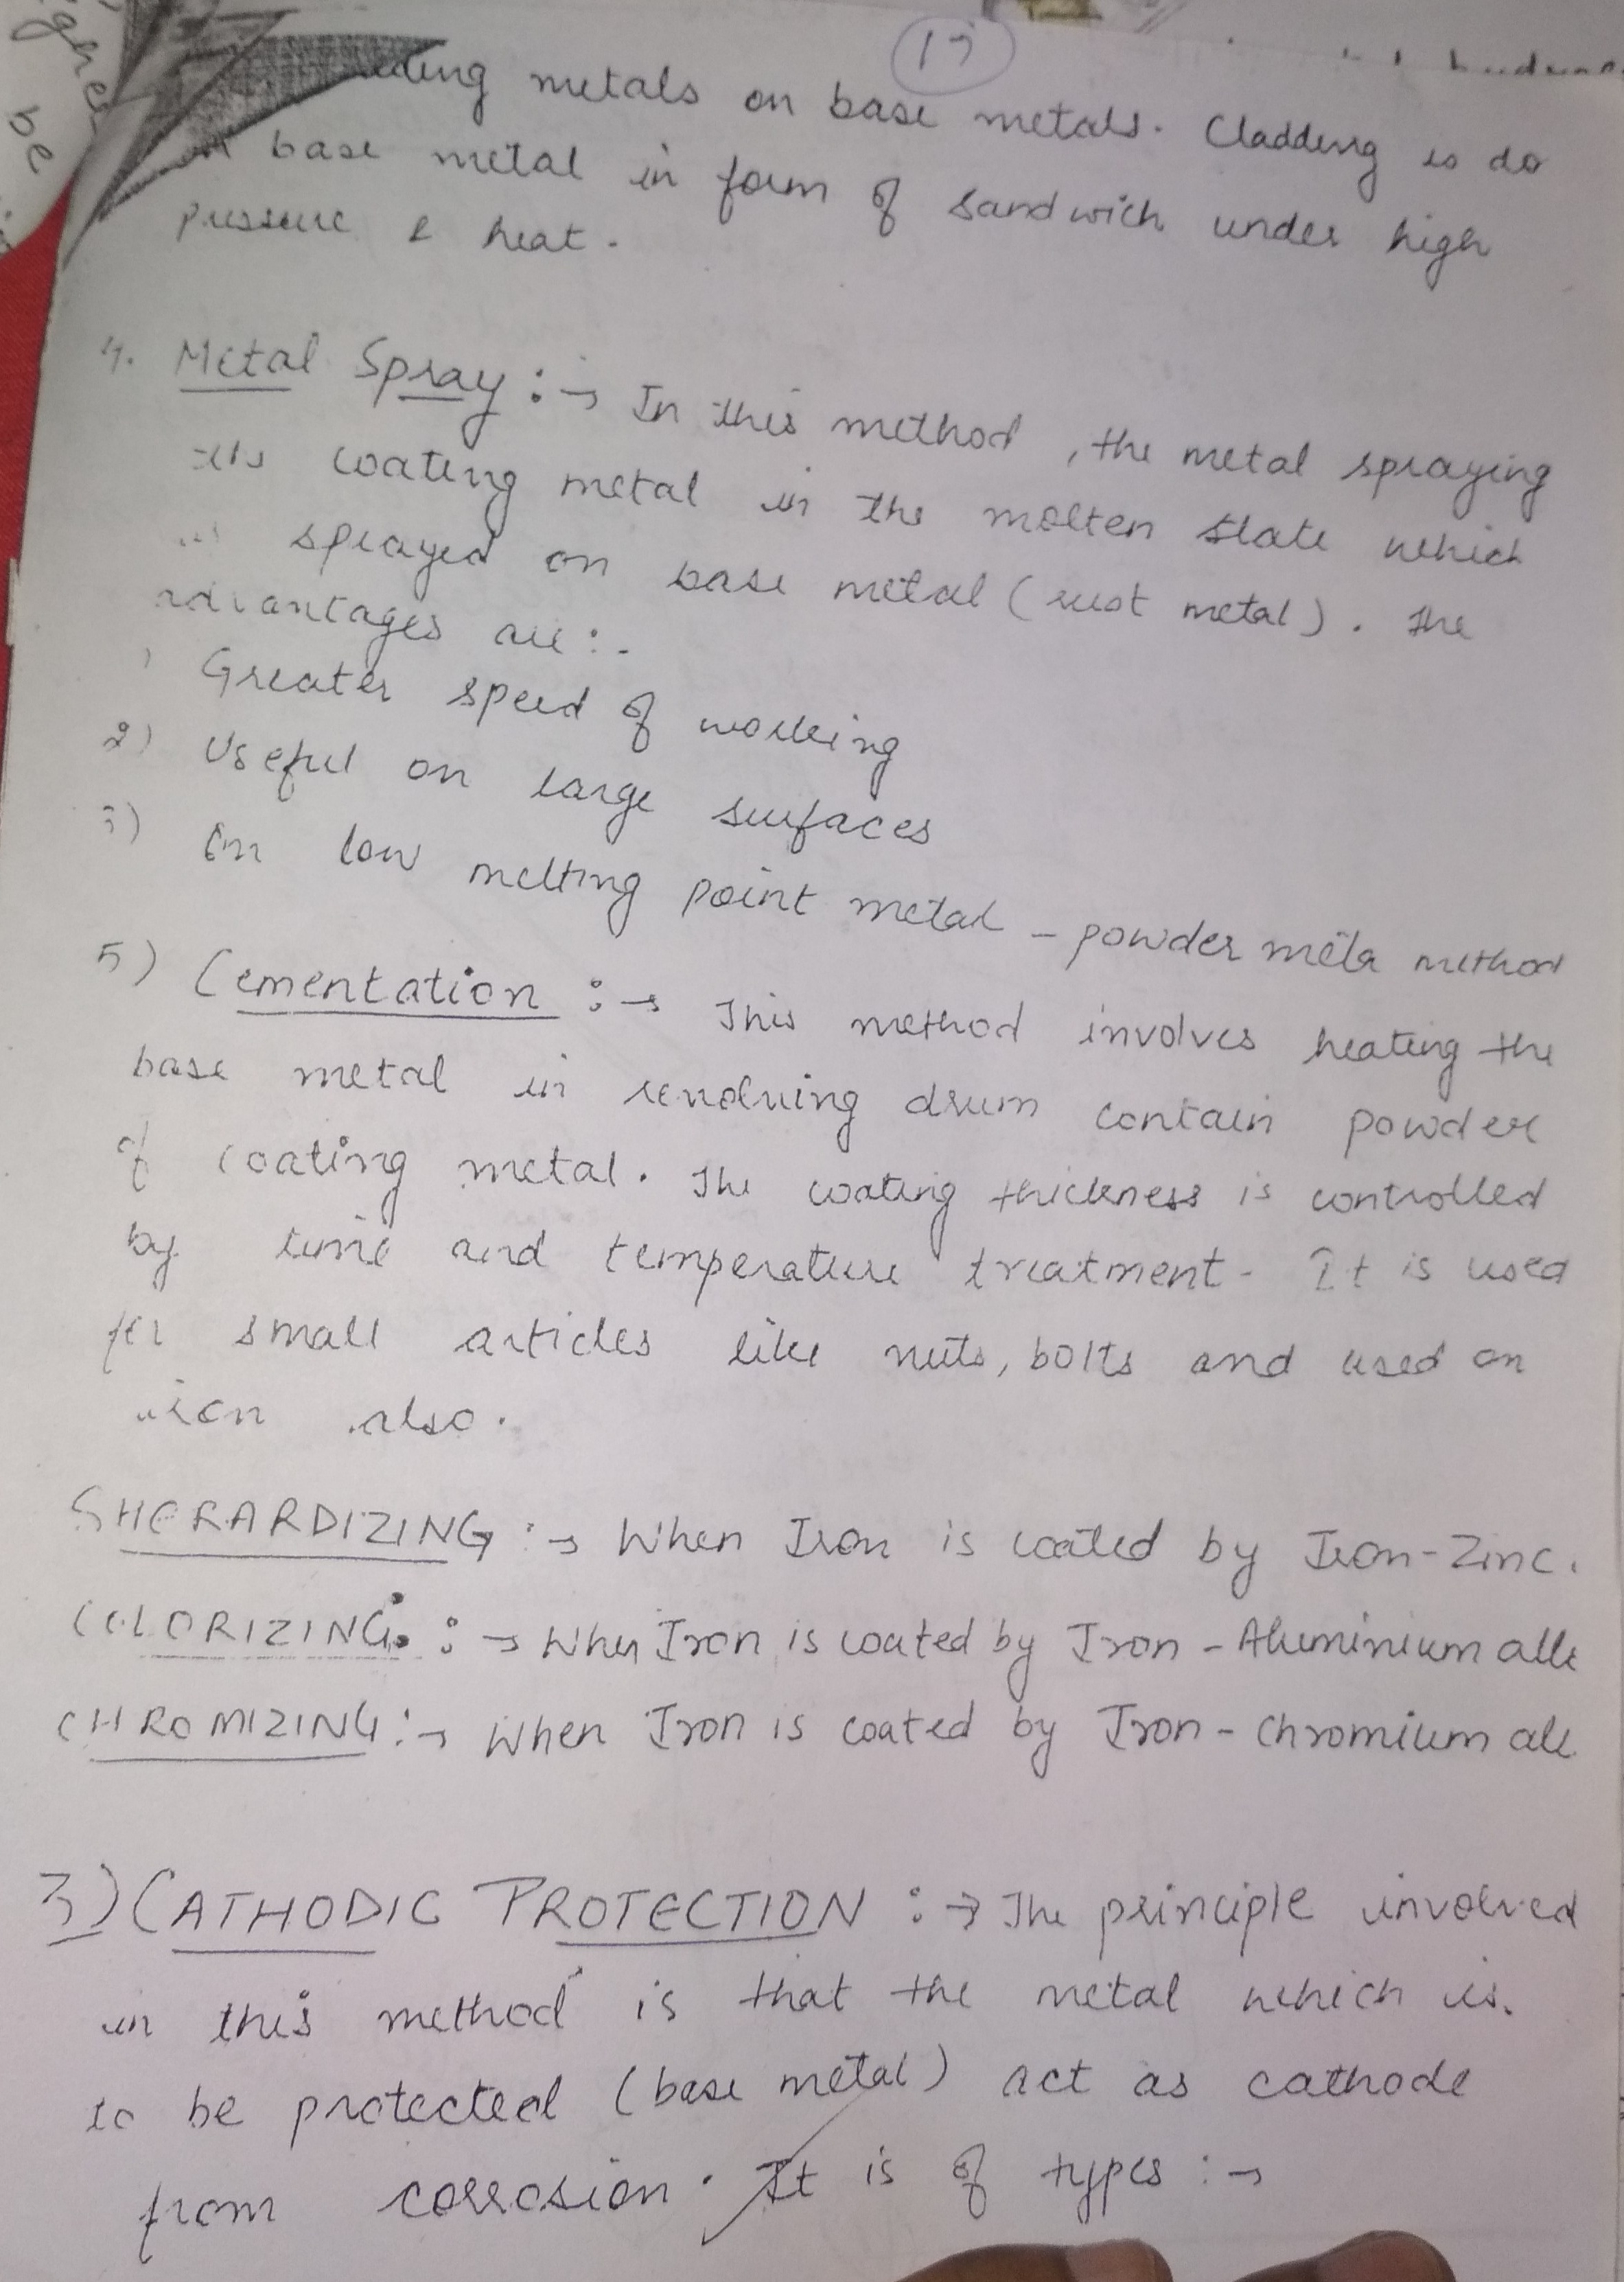 metals on base metals. Cladding is do
base metal in form of sandwich under high
pressure & heat.
4. Metal Spray :→ In this method, the metal spraying
coating metal in the molten state which
sprayed on base metal (rust metal). The
advantages are :-
1 Greater speed of working
2) Useful on large surfaces
3) On low melting point metal - powder meta method
5) Cementation :→ This method involves heating the
base metal in revolving drum contain powder
of coating metal. The coating thickness is controlled
by time and temperature treatment. It is used
for small articles like nuts, bolts and used on
iron also.
SHERARDIZING :→ When Iron is coated by Iron-Zinc.
COLORIZING :→ When Iron is coated by Iron-Aluminium
CHROMIZING :→ When Iron is coated by Iron-Chromium
3) CATHODIC PROTECTION :→ The principle involved
in this method is that the metal which is.
to be protected (base metal) act as cathode
from corrosion. It is of types :→